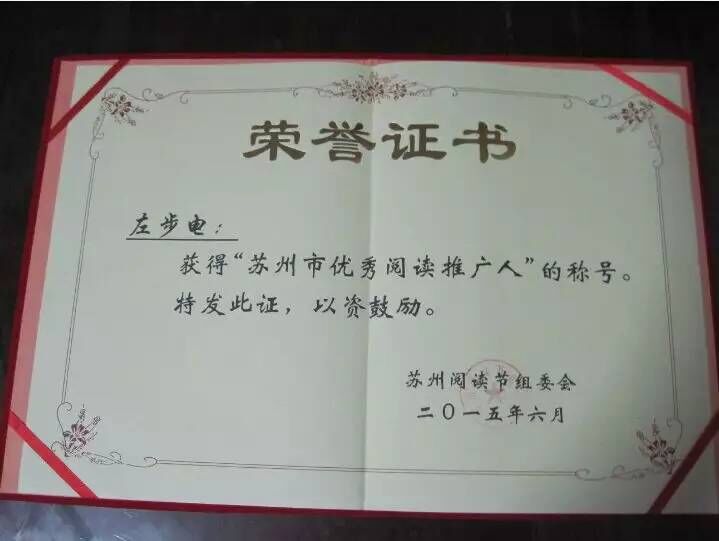 荣誉证书
左步电：
获得“苏州市优秀阅读推广人”的称号。
特发此证，以资鼓励。
苏州阅读节组委会
二〇一五年六月